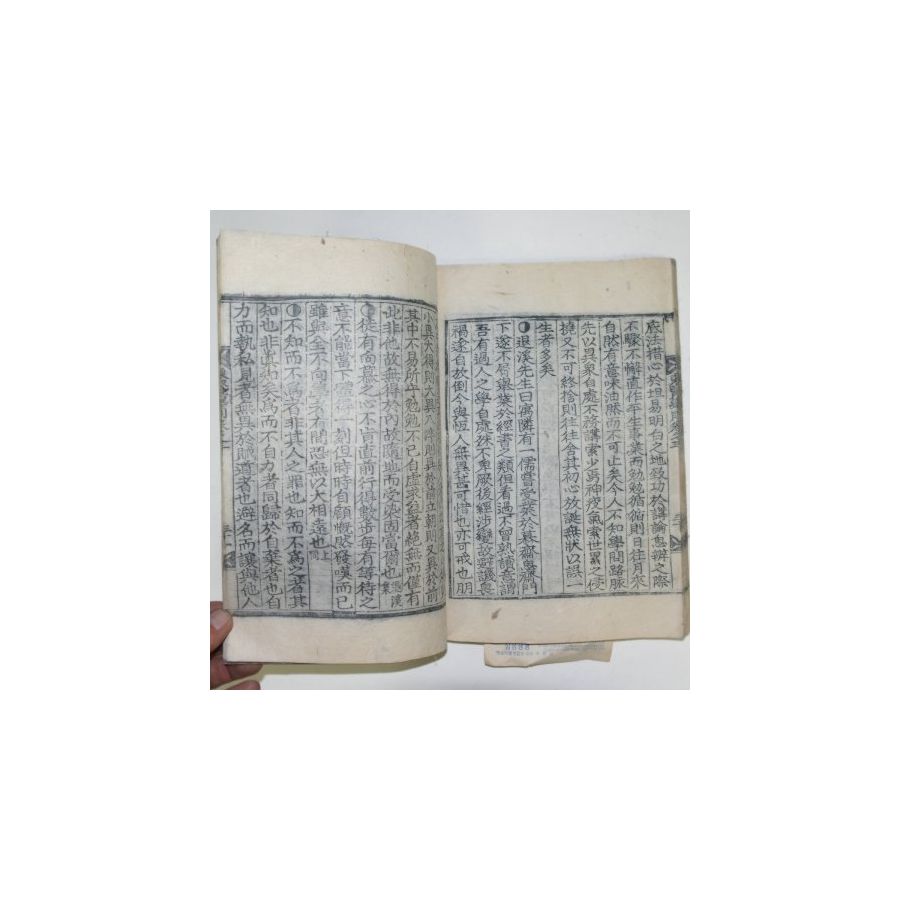 底法措心於坦易明白之地致功於講論思辨之際
不驟不懈直作平生事業而勉勉循循則日往月來
自然有意味油然而不可止矣今人不知學問路脉
先以異衆自處不務講索少焉神疲氣索世累之侵
撓又不可終捨則往往舍其初心放誕無狀以誤一
生者多矣
退溪先生曰寓隣有一儒嘗受業於齋門
下遂不屑舉業於經書之類但看過不曾熟讀意謂
吾有過人之學自處殊不卑厥後經涉變故避譏與
禍遂自放倒今與恆人無異甚可惜也亦可戒也朋
小異大得則大異入則異於前立朝則又異於前
其中不易所守勉勉不已自虛求益者絶無而僅有
此非他故無得於內故隨地而受染固當爾也 退溪集
從有向慕之心不肯直前行得數步每有等待之
意不能當下一刻但時時自顧慨然發嘆而已
雖與全不向望者有間恐無以大相遠也 上同
不知而不爲者非其人之罪也知而不爲之者其
知也非眞知矣爲而不自力者同歸於自棄者也自
力而執私見者無異於賊道者也避名而讓與他人